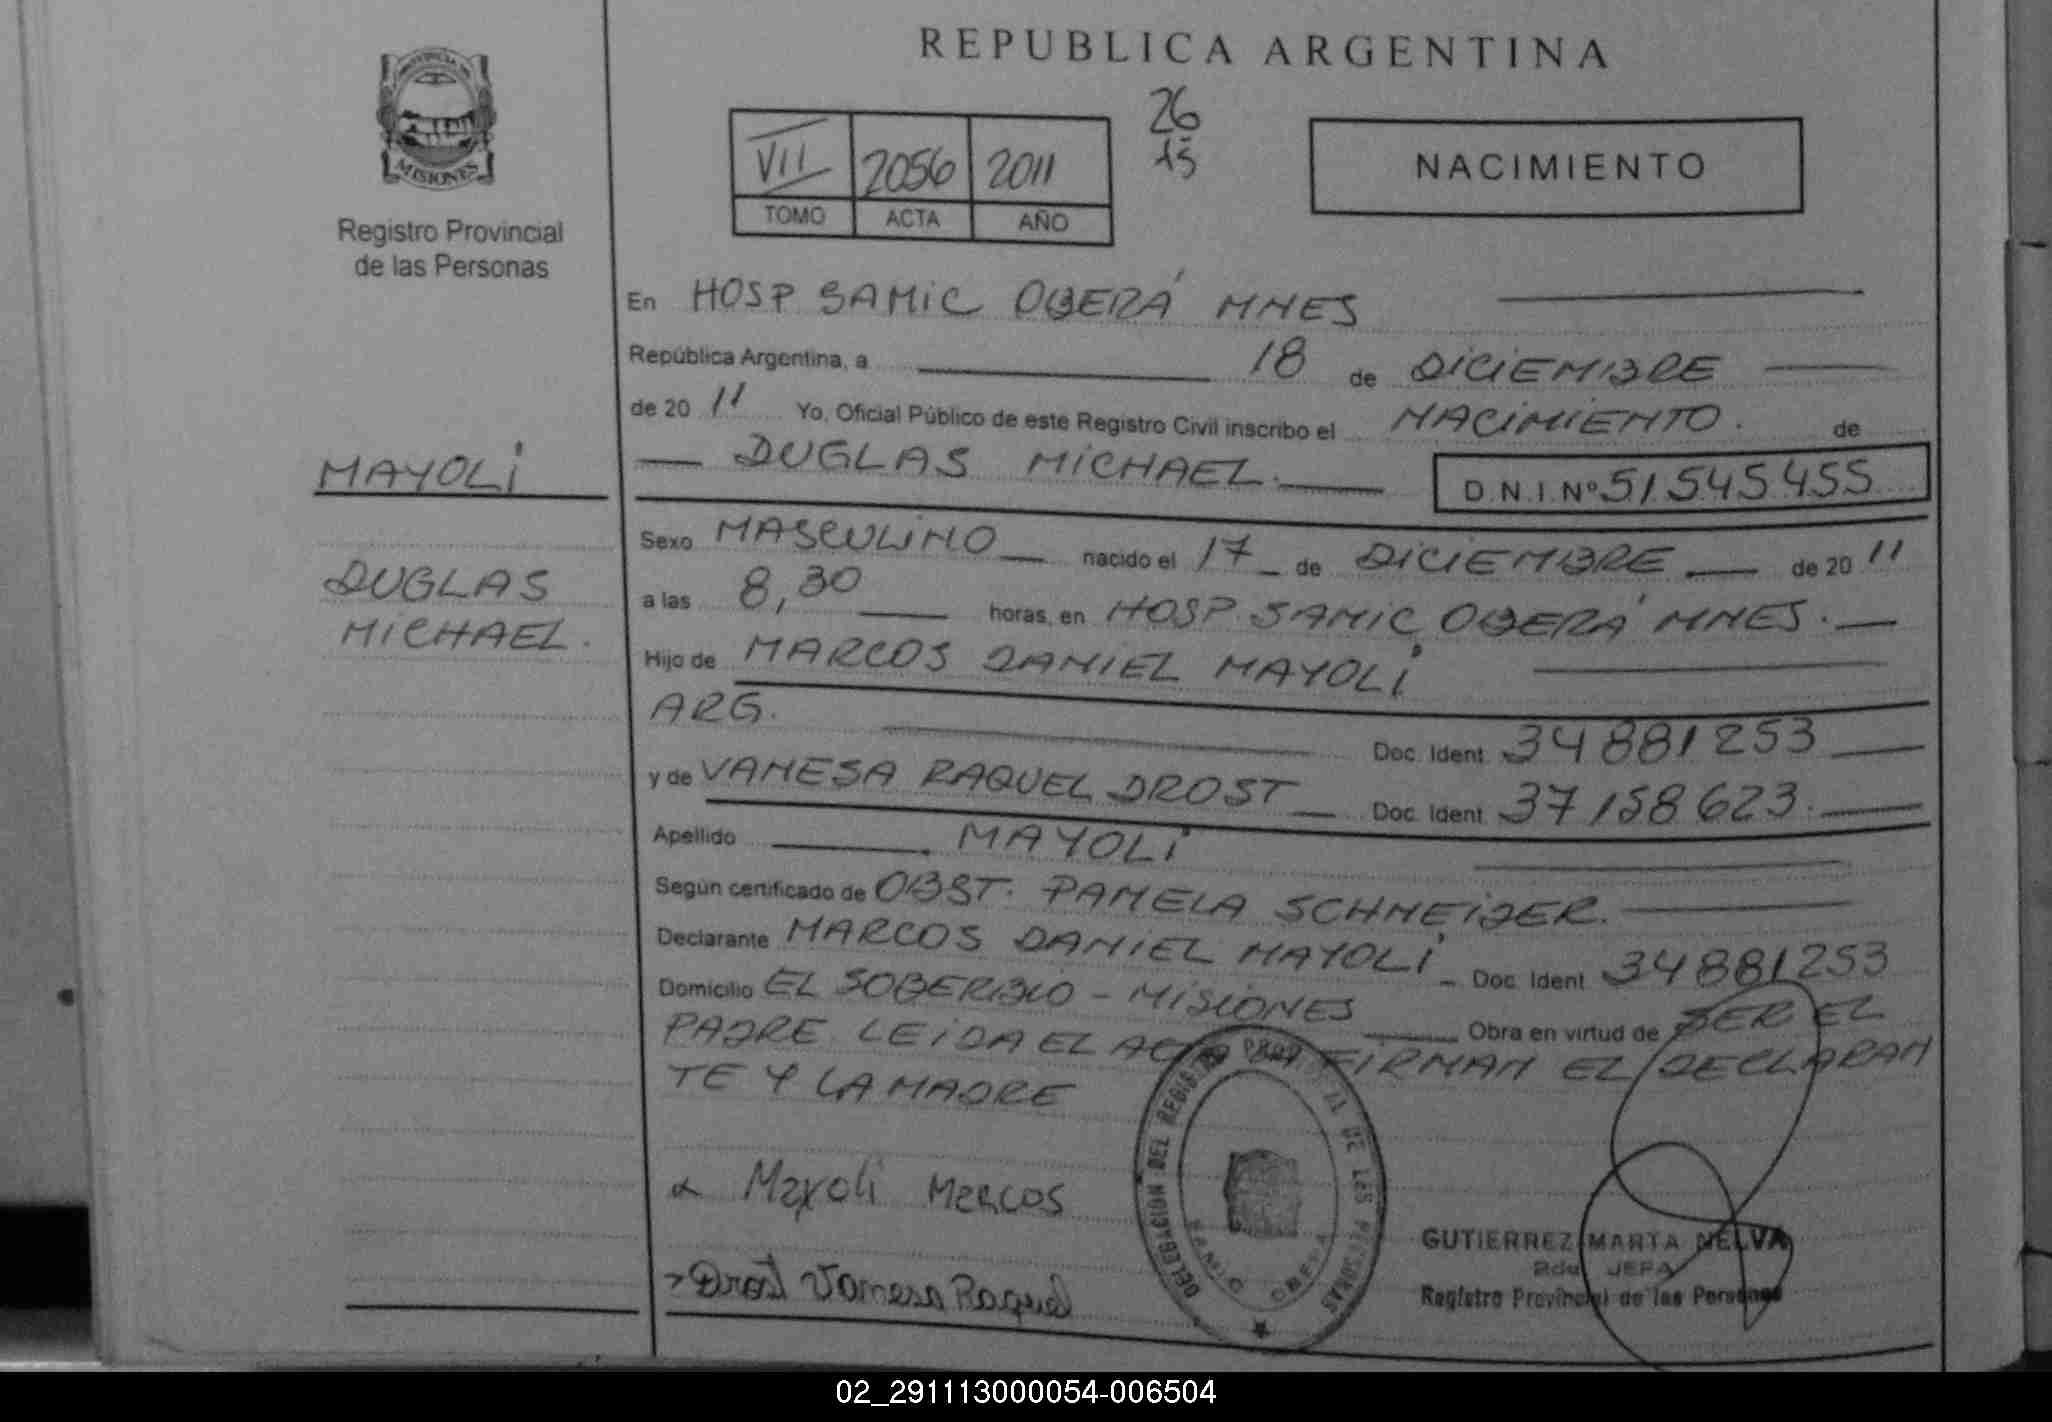 PROVINCIA DE
MISIONES
Registro Provincial
de las Personas
MAYOLI
DUGLAS
MICHAEL.
REPUBLICA ARGENTINA
26
15
VII 2056 2011
TOMO ACTA AÑO
NACIMIENTO
En HOSP SAMIC OBERÁ MNES
República Argentina, a 18 de DICIEMBRE
de 20 11 Yo, Oficial Público de este Registro Civil inscribo el NACIMIENTO. de
DUGLAS MICHAEL. D.N.I.Nº 51545455
Sexo MASCULINO nacido el 17 de DICIEMBRE de 20 11
a las 8,30 horas, en HOSP. SAMIC OBERÁ MNES.
Hijo de MARCOS DANIEL MAYOLI
ARG. Doc. Ident. 34881253
y de VANESA RAQUEL DROST Doc. Ident. 37158623.
Apellido MAYOLI
Según certificado de OBST. PAMELA SCHNEIDER.
Declarante MARCOS DANIEL MAYOLI Doc. Ident. 34881253
Domicilio EL SOBERBIO - MISIONES Obra en virtud de SER EL
PADRE LEIDA EL ACTA FIRMAN EL DECLARAN
TE Y LA MADRE
Mayoli Marcos
Drost Vanesa Raquel
DELEGACION DEL REGISTRO PROVINCIAL DE LAS PERSONAS
SAMIC OBERA
GUTIERREZ MARTA NELVA
2da JEFA
Registro Provincial de las Personas
02_291113000054-006504